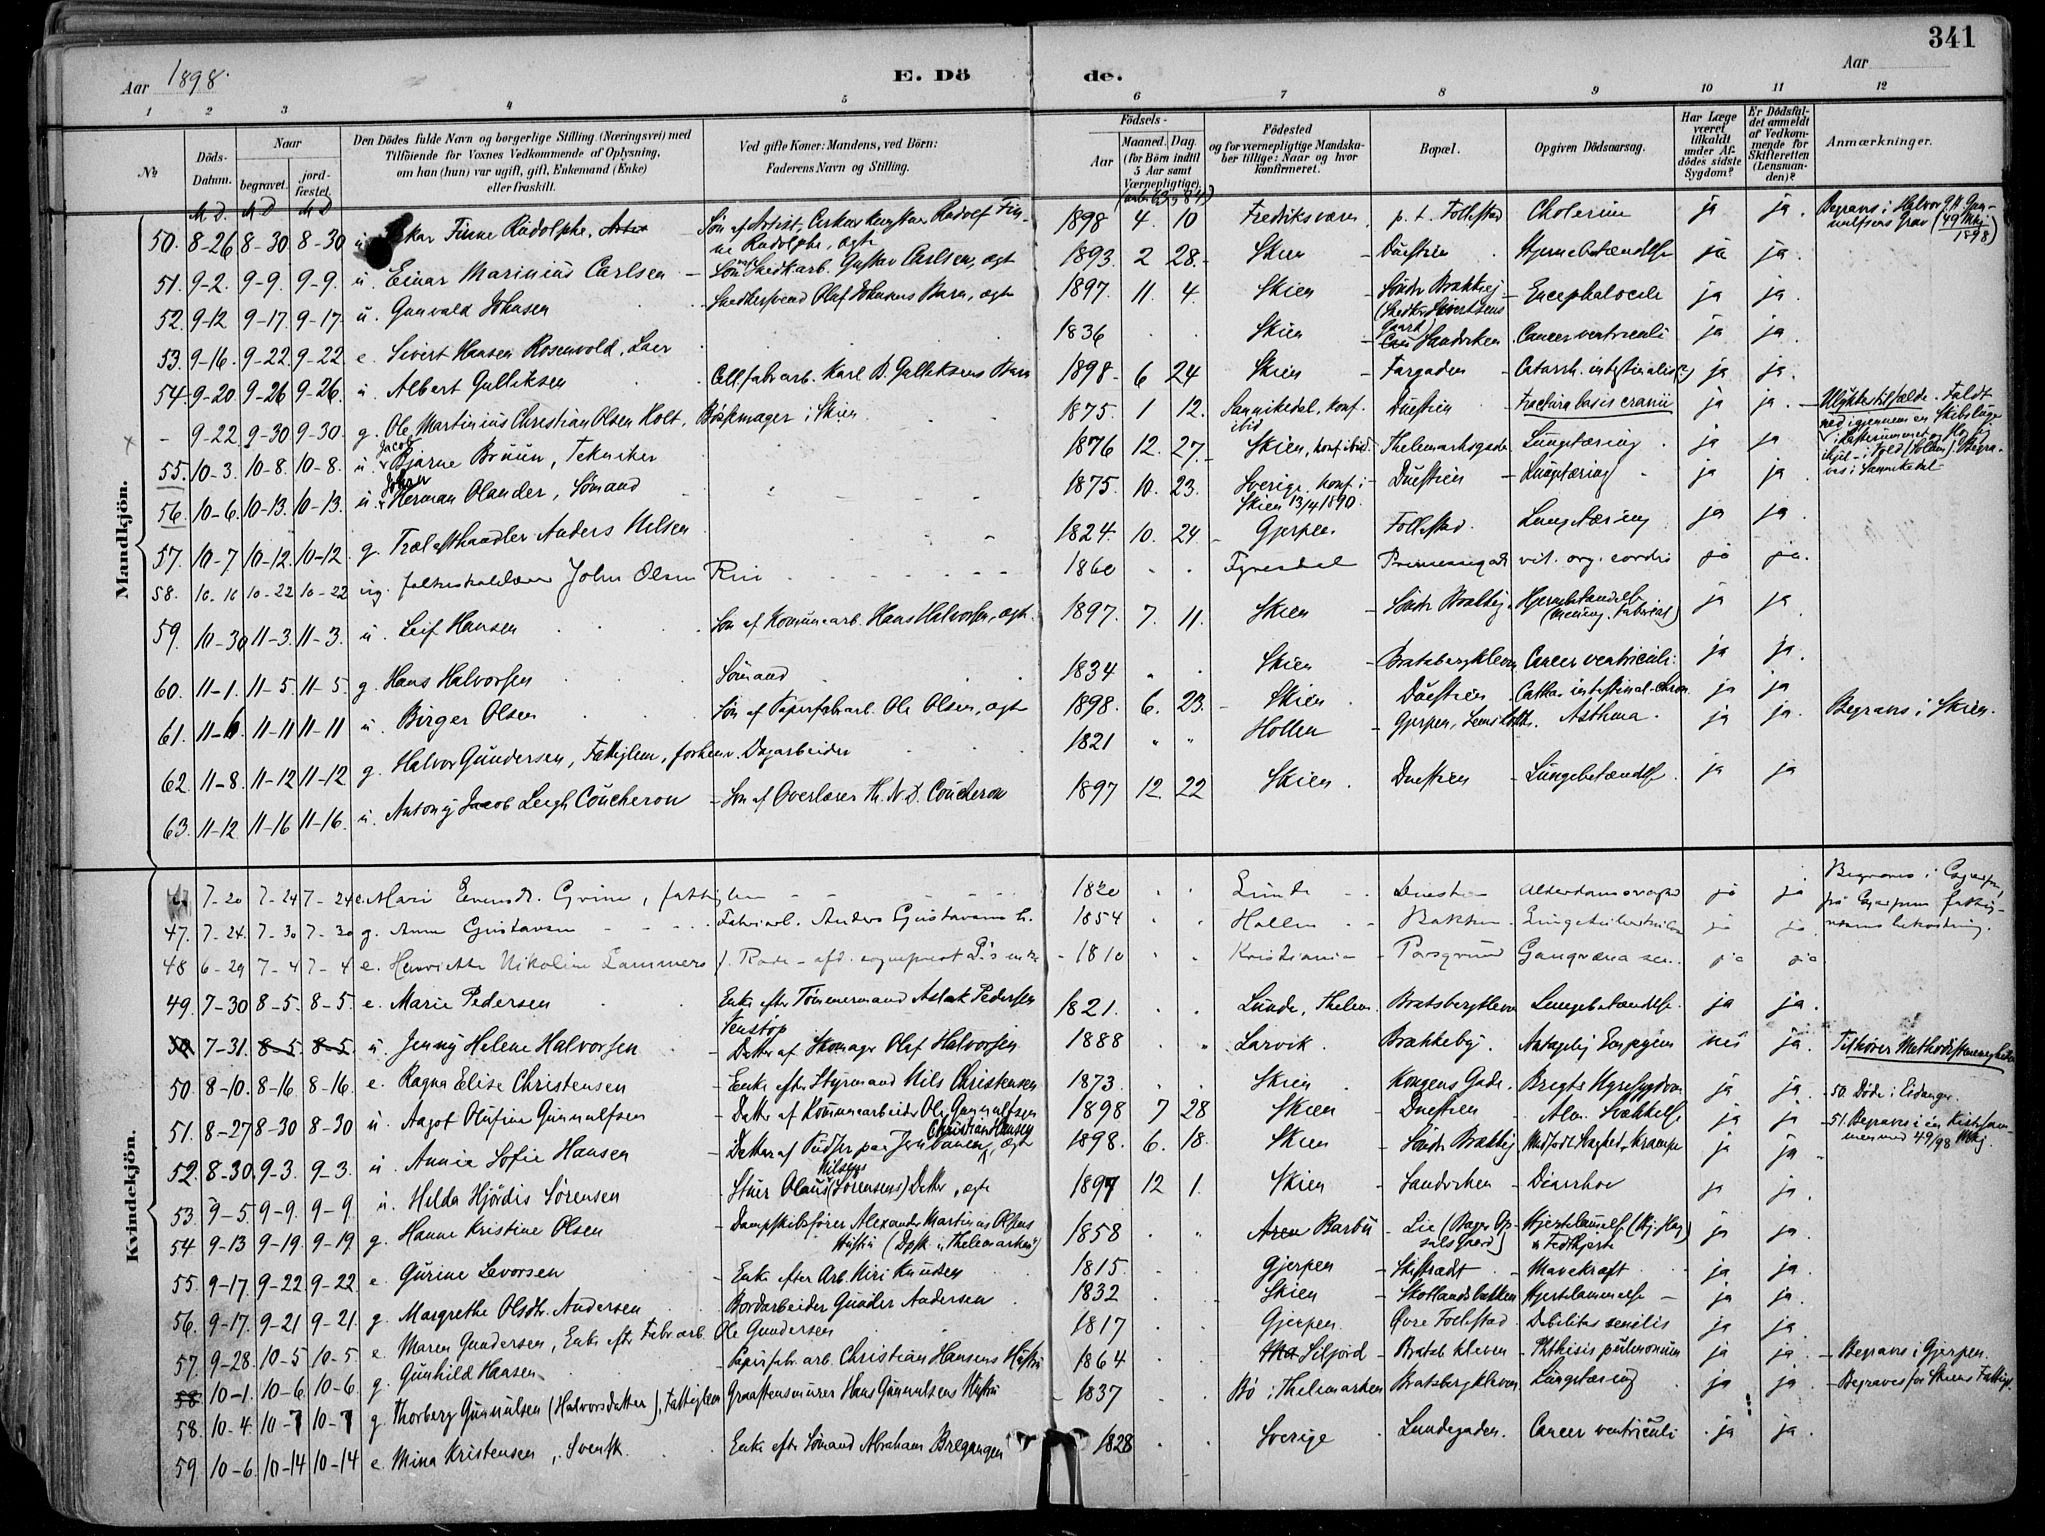 341
Aar 1898.
E. Dö de.
Aar
1 2 3 4 5 6 7 8 9 10 11 12
No
Döds-Datum.
Naar
begravet.
jord-fæstet.
Den Dödes fulde Navn og borgerlige Stilling (Næringsvei) med Tilföiende for Voxnes Vedkommende af Oplysning, om han (hun) var ugift, gift, Enkemand (Enke) eller fraskilt.
Ved gifte Koner: Mandens, ved Börn: Faderens Navn og Stilling.
Födsels-
Aar
Maaned. Dag
(for Börn indtil 5 Aar samt Værnepligtige)
Födested og for værnepligtige Mandskaber tillige: Naar og hvor konfirmeret.
Bopæl.
Opgiven Dödsaarsag.
Har Læge været tilkaldt under Afdödes sidste Sygdom?
Er Dödsfaldet anmeldt af Vedkommende for Skifteretten (Lensmanden)?
Anmærkninger.
M. D. M D M D
Mandkjön.
50. 8-26 8-30 8-30 u. Finne Rudolphe. Søn af Artist, Rudolf Finne Rudolphe, ægte 1898 4. 10 Fredriksværn p. t. Follestad Cholerine ja ja. Begraves i Halvor Gunnulfsens Grav (49 Mkj. 1898)
51. 9-2. 9-9. 9-9. u. Einar Marinius Carlsen - Søn af Snedkarb. Gustav Carlsen, ægte 1893. 2 28. Skien - Duestien Hjernebetændelse ja ja.
52. 9-12 9-17 9-17. u. Gunvald Johnsen Snedkersvend Olaf Johnsens Barn, ægte 1897. 11. 4. Skien - Søndr Brækkeby - Encephalocele ja ja.
53. 9-16. 9-22 9-22 e. Sivert Hansen Rosenvold, Løser 1836 Skien - Sandviken Cancer ventriculi ja ja
54. 9-20 9-26 9-26. u. Albert Gulliksen Cell. fabr arb. Karl D. Gulliksens Barn 1898 - 6 24 Skien - Fargaden - Catarrh. intestinalis ja ja.
- 9-22 9-30 9-30. g. Ole Martinius Christian Olsen Holt, Bøssemager i Skien 1875. 1 12. Sannikedal, konf. ibid Duestien Fractura basis cranii ja ja. - Ulykkestilfælde. Faldt ned igjennem en Skibsluge
55. 10-3. 10-8. 10-8. u. Jacob Bjarne Bruun, Tekniker 1876 12. 27. - Skien, konf. ibid. Thelemarksgaden Lungetæring ja ja
56. 10-6. 10-13. 10-13. u. Johan Herman Olander, Sømand 1875. 10. 23. Sverige, Konf. i Skien 13/4 1890. Duestien - Lungetæring ja ja
57. 10-7 10-12. 10-12. g. Trælasthandler Anders Nilsen 1824. 10. 24 - Gjerpen Follestad. Lungetæring ja ja.
58. 10-16 10-22 10-22 ug. John Olsen Rui 1860 Fyresdal Prinsessegade vit. org. cordis ja ja.
59. 10-30 11-3. 11-3. u. Leif Hansen Søn af Komunearb. Hans Halvorsen, ægte. 1897. 7. 11. Skien - Søndr Brækkeby - Hjernebetændelse ja ja
60. 11-1. 11-5 11-5. g. Hans Halvorsen Sømand 1834 Skien - Bratsbergkleven Cancer ventriculi. ja ja.
61. 11-6 11-11 11-11 u. Birger Olsen Søn af Papirfabr arb. Ole Olsen, ægte 1898. 6. 23. - Skien - Duestien Catha. intestinal. chron. ja ja
62. 11-8. 11-12 11-12 g. Halvor Gundersen, Fattiglem, forhenv. Dagarbeider 1821 Hollen - Gjerpen, Asthma. ja ja. Begraves i Skien.
63. 11-12. 11-16 11-16. u. Antony Jacob Leigh Coucheron - Søn af Overlærer Th. N. D. Coucheron 1897 12. 22 Skien. Duestien - Lungebetændelse ja ja
Kvindekjön.
7-20 7-24 7-24 e. Mari Evensdt. Grini, fattiglem 1820 Lunde Duestien Alderdomssvaghed ja ja Begraves i Gjerpen på Gjerpens fattigvæsens bekostning.
47. 7-24. 7-30 7-30 g. Anne Gustavsen Fabriarb. Anders Gustavsens h. 1854 Hollen Bakken Lungetuberkulose ja ja
48 6-29 7-4 7-4 e. Henriette Nikoline Lammers f. Rode - afd. sogneprest 1810 Kristiania - Porsgrund Gangræna sen. ja ja
49. 7-30 8-5. 8-5. e. Marie Pedersen Enke efter Tømmermand Aslak Pedersen Venstøp 1821. Lunde, Thelem. Bratsbergkleven Lungebetændelse. ja ja.
50 7-31. 8-5. 8-5. u. Jenny Helene Halvorsen - Datter af Skomager Olaf Halvorsen 1888 Larvik. Brækkeby. Antagelig Empyem nei ja. Tilhører Methodistmenigheden
50. 8-10. 8-16 8-16. e. Ragna Elise Christensen - Enke efter Styrmand Nils Christensen 1873. Skien. Kongens Gade. Brights Nyresygdom ja ja. 50. Døde i Eidanger.
51. 8-27 8-30 8-30 u. Aagot Olufine Gunnulfsen - Datter af Komunearbeider Ole Gunnulfsen 1898 7 28 Skien - Duestien - Alm. Svækkelse ja ja 51. Begraves i en Kiste sammen med 49/98 Mkj.
52. 8-30. 9-3. 9-3. u. Annie Sofie Hansen - Datter af Pudser paa Jernbanen Christian Hansen, ægte 1898. 6. 18. Skien - Søndr Brækkeby Medfødt Svaghed, Krampe ja ja
53. 9-5. 9-9. 9-9. u. Hilda Hjørdis Sørensen Stuer Olaus Nilsens (Sørensens) Datter, ægte 1897 12 1. Skien - Sandviken - Diarrhoe ja ja.
54 9-13 9-19. 9-19 g. Hanne Kristine Olsen - Dampskibsfører Alexander Martinius Olsens Hustru (Dpsk. "Thelemarken") 1858 Barbu - Lie Hjertelammelse & Fedthjerte ja ja.
55. 9-17. 9-22 9-22. e. Gurine Levorsen - Enke efter Arb. Niri Knudsen 1815. Gjerpen - Skistrædt - Mavekræft ja ja.
56. 9-17. 9-21 9-21. g. Margrethe Olsdtr. Andersen Bordarbeider Gunder Andersen 1832 Skien - Skotlandsbakken Hjertelammelse - ja ja.
57. 9-28. 10-5 10-5 e. Maren Gundersen, Enke eftr Fabr arb. Ole Gundersen 1817 Gjerpen. Øvre Follestad. Debilitas senilis ja ja
58 10-1. 10-6. 10-6 g. Gunhild Hansen - Papirfabr. arb. Christian Hansens Hustru 1864 Siljord - Bratsb. kleven - Phthisis pulmonum ja ja. - Begraves i Gjerpen.
58. 10-4. 10-7 10-7 g Thorberg Gunnulsen (Halvorsdatter), Fattiglem Graastensmurer Hans Gunnulsens Hustru - 1837 Bø i Thelemarken Bratsbergkleven Lungetæring ja ja. - Begraves for Skiens Fattigv.
59. 10-6. 10-14 10-14 e. Mina Kristensen, Svensk. Enke eftr Sømand Abraham Bregangen 1828 Sverige Lundegaden. Cancer ventriculi ja ja.